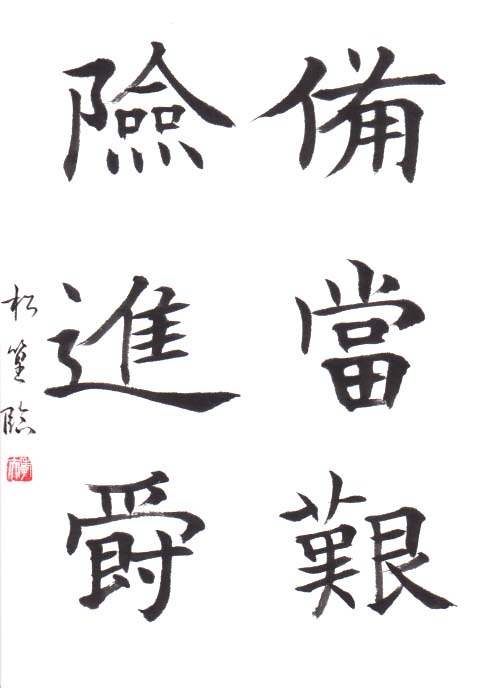 備當艱
險進爵
松篁臨